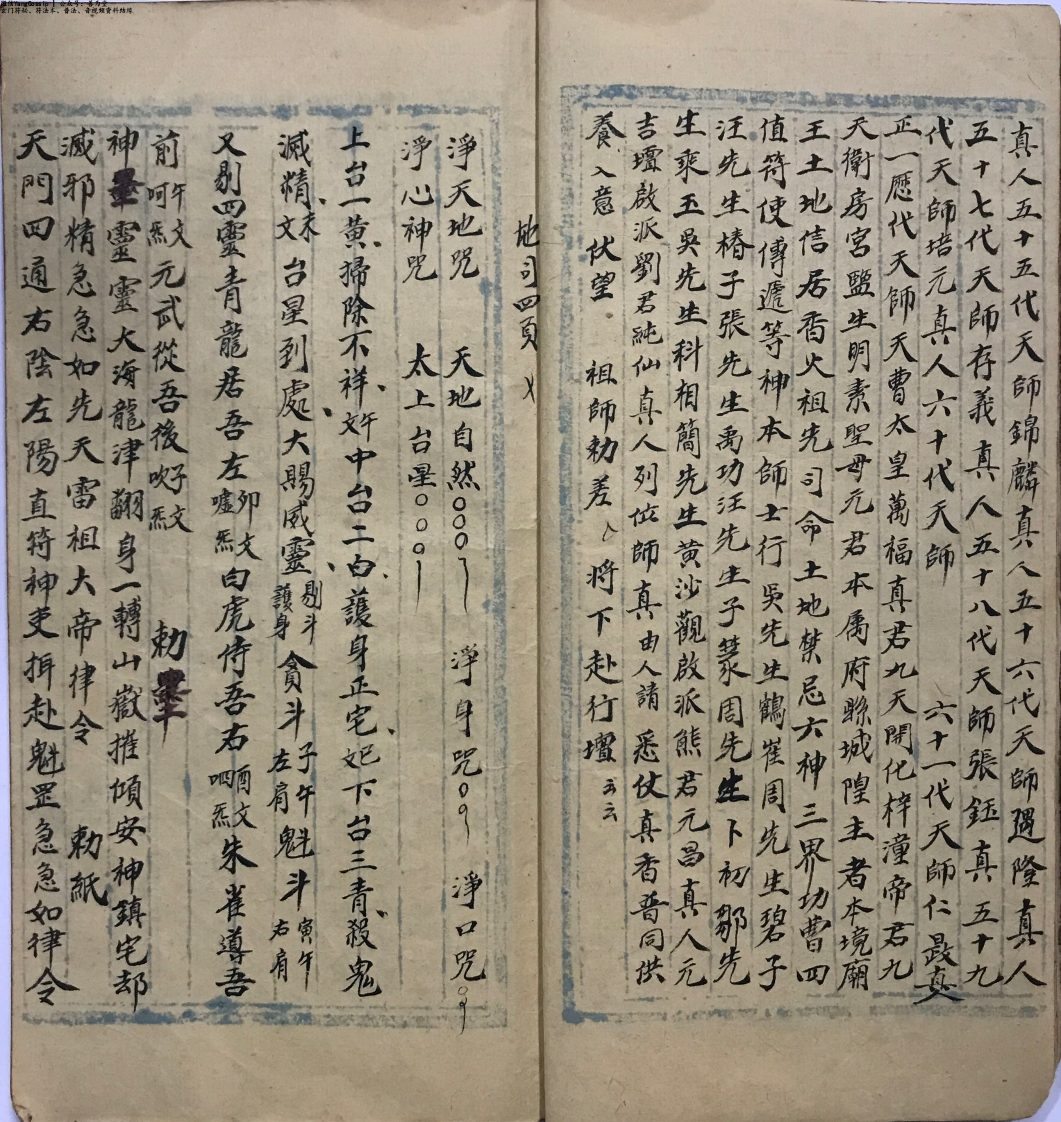 真人五十五代天師錦麟真人五十六代天師遇隆真人
五十七代天師存義真人五十八代天師張鈺真 五十九
代天師培元真人六十代天師 六十一代天師仁晸真
正一歷代天師 天曹太皇萬福真君九天開化梓潼帝君九
天衛房宮監生明素聖母元君本属府縣城隍主者本境廟
王土地信居香火祖先司命土地禁忌六神三界功曹四
值符使傳遞等神本師士行吳先生鶴崔周先生碧子
汪先生椿子張先生禹功汪先生子篆周先生下初鄒先
生乘玉吳先生科相簡先生黄沙觀啟派熊君元昌真人元
吉壇啟派劉君純仙真人列位師真由人請 悉仗真香普同供
養入意 伏望 祖師勅差 將下赴行壇 云云
地司四頁
淨天地咒 天地自然〇〇〇 淨身咒〇〇 淨口咒〇
淨心神咒 太上台星〇〇〇
上台一黄掃除不祥午文中台二白護身正宅妃下台三青殺鬼
滅精未文 台星到處大賜威靈剔斗護身 貪斗子午左肩魁斗寅午右肩
又剔四靈青龍居吾左卯文噓炁白虎侍吾右酉文呬炁朱雀導吾
前午文呵炁元武從吾後子文吹炁 勅墨
神墨靈靈大海龍津翻身一轉山嶽摧傾安神鎮宅却
滅邪精急急如先天雷祖大帝律令 勅紙
天門四通右陰左陽直符神吏揖赴魁罡急急如律令